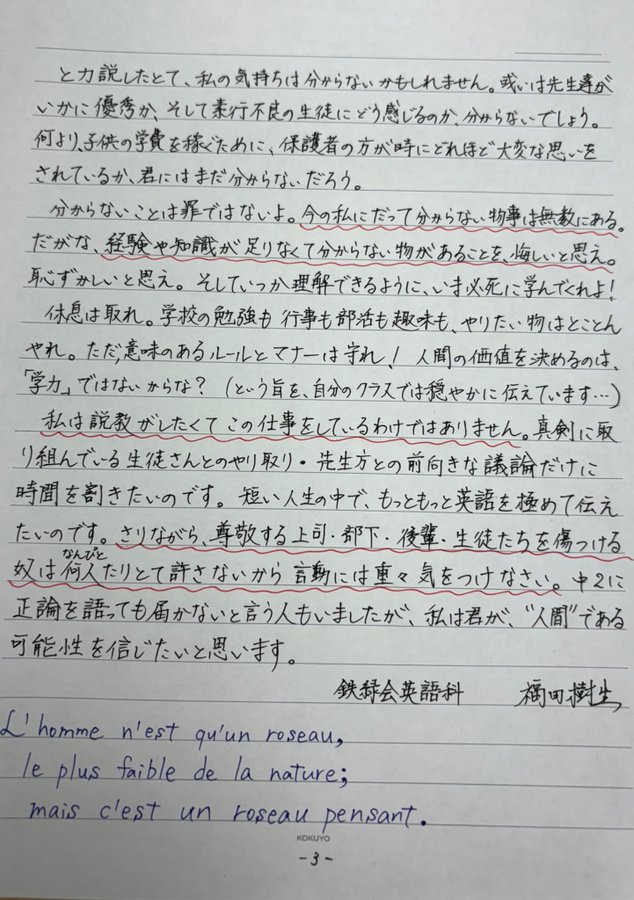 と力説したとて、私の気持ちは分からないかもしれません。或いは先生等が
いかに優秀か、そして素行不良の生徒にどう感じるのか、分からないでしょう。
何より、子供の学費を稼ぐために、保護者の方が時にどれほど大変な思いを
されているか、君にはまだ分からないだろう。
分からないことは罪ではないよ。今の私にだって分からない物事は無数にある。
だがな、経験や知識が足りなくて分からない物があることを、悔しいと思え。
恥ずかしいと思え。そしていつか理解できるように、いま必死に学んでくれよ!
休息は取れ。学校の勉強も行事も部活も趣味も、やりたい物はとことん
やれ。ただ、意味のあるルールとマナーは守れ! 人間の価値を決めるのは、
「学力」ではないからな? (という旨を、自分のクラスでは穏やかに伝えています…)
私は説教がしたくてこの仕事をしているわけではありません。真剣に取
り組んでいる生徒さんとのやり取り・先生方との前向きな議論だけに
時間を割きたいのです。短い人生の中で、もっともっと英語を極めて伝え
たいのです。さりながら、尊敬する上司・部下・後輩・生徒たちを傷つける
なんぴと
奴は何人たりとて許さないから言動には重々気をつけなさい。中2に
正論を語っても届かないと言う人もいましたが、私は君が、"人間"である
可能性を信じたいと思います。
鉄緑会英語科 福田樹生
L'homme n'est qu'un roseau,
le plus faible de la nature;
mais c'est un roseau pensant.
KOKUYO
-3-